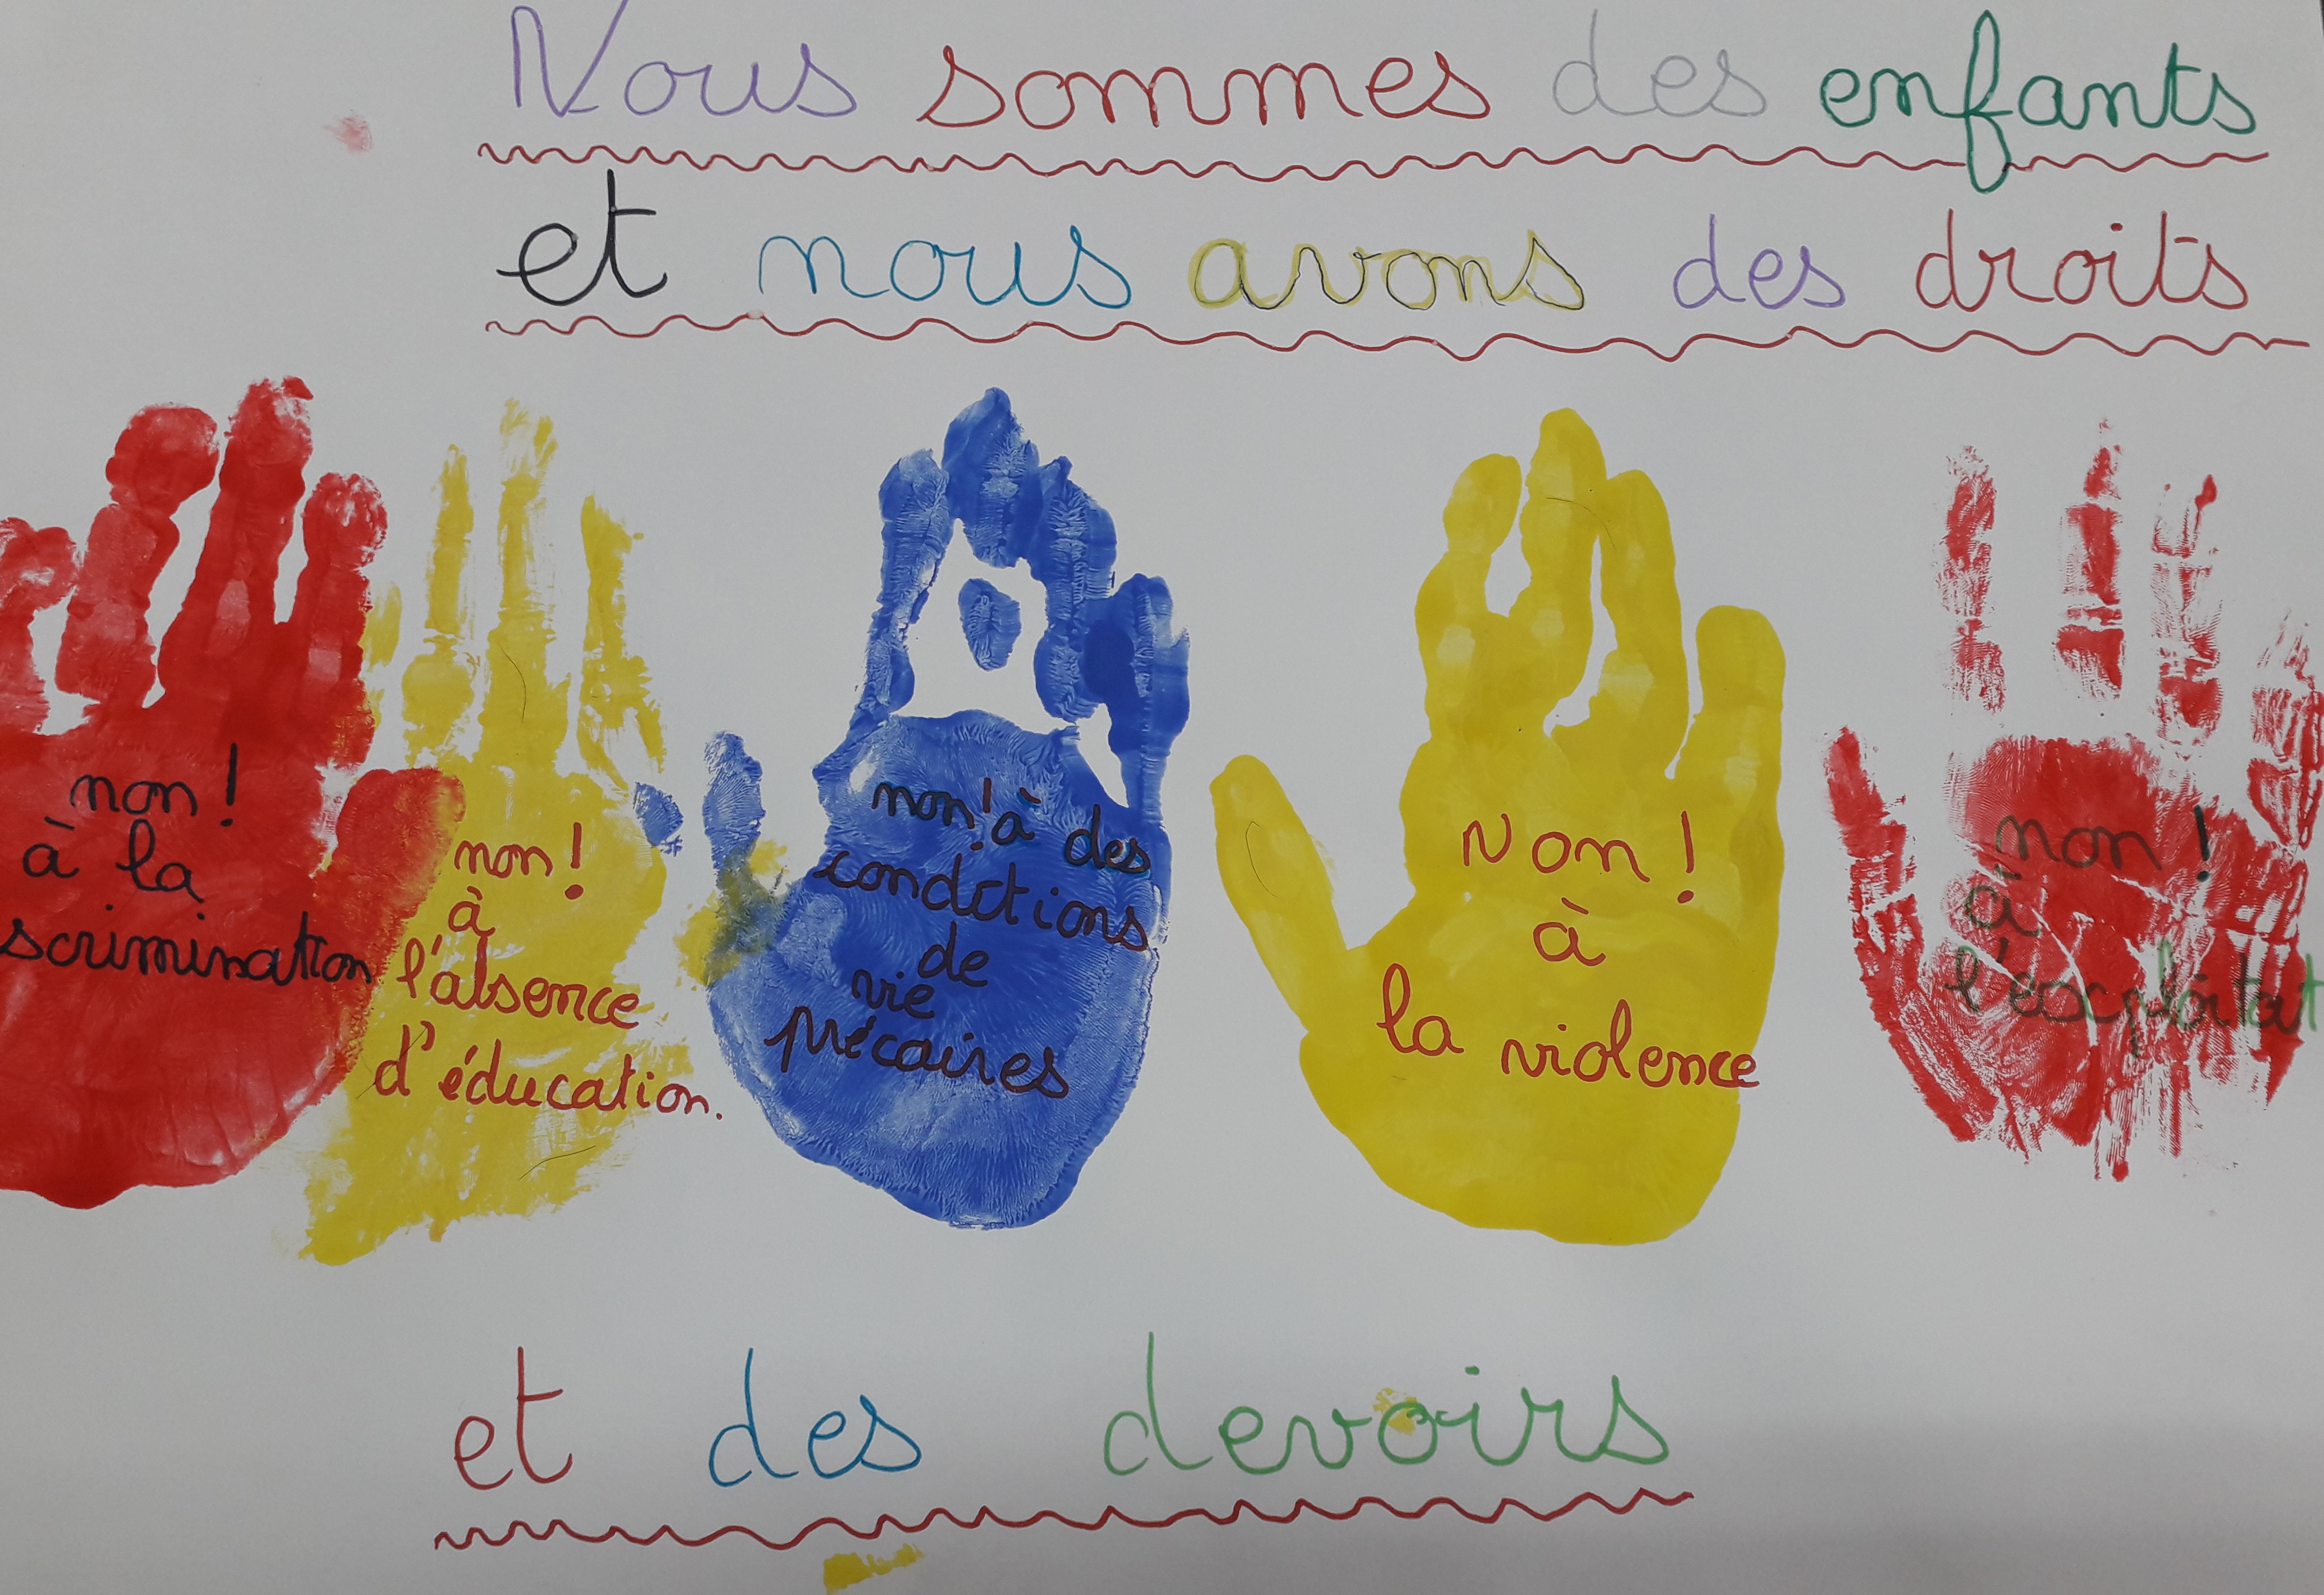 Nous sommes des enfants
et nous avons des droits
non !
à la
scrimination
non !
à
l'absence
d'éducation.
non ! à des
conditions
de
vie
précaires
Non !
à
la violence
non !
à
l'exploitat
et des devoirs